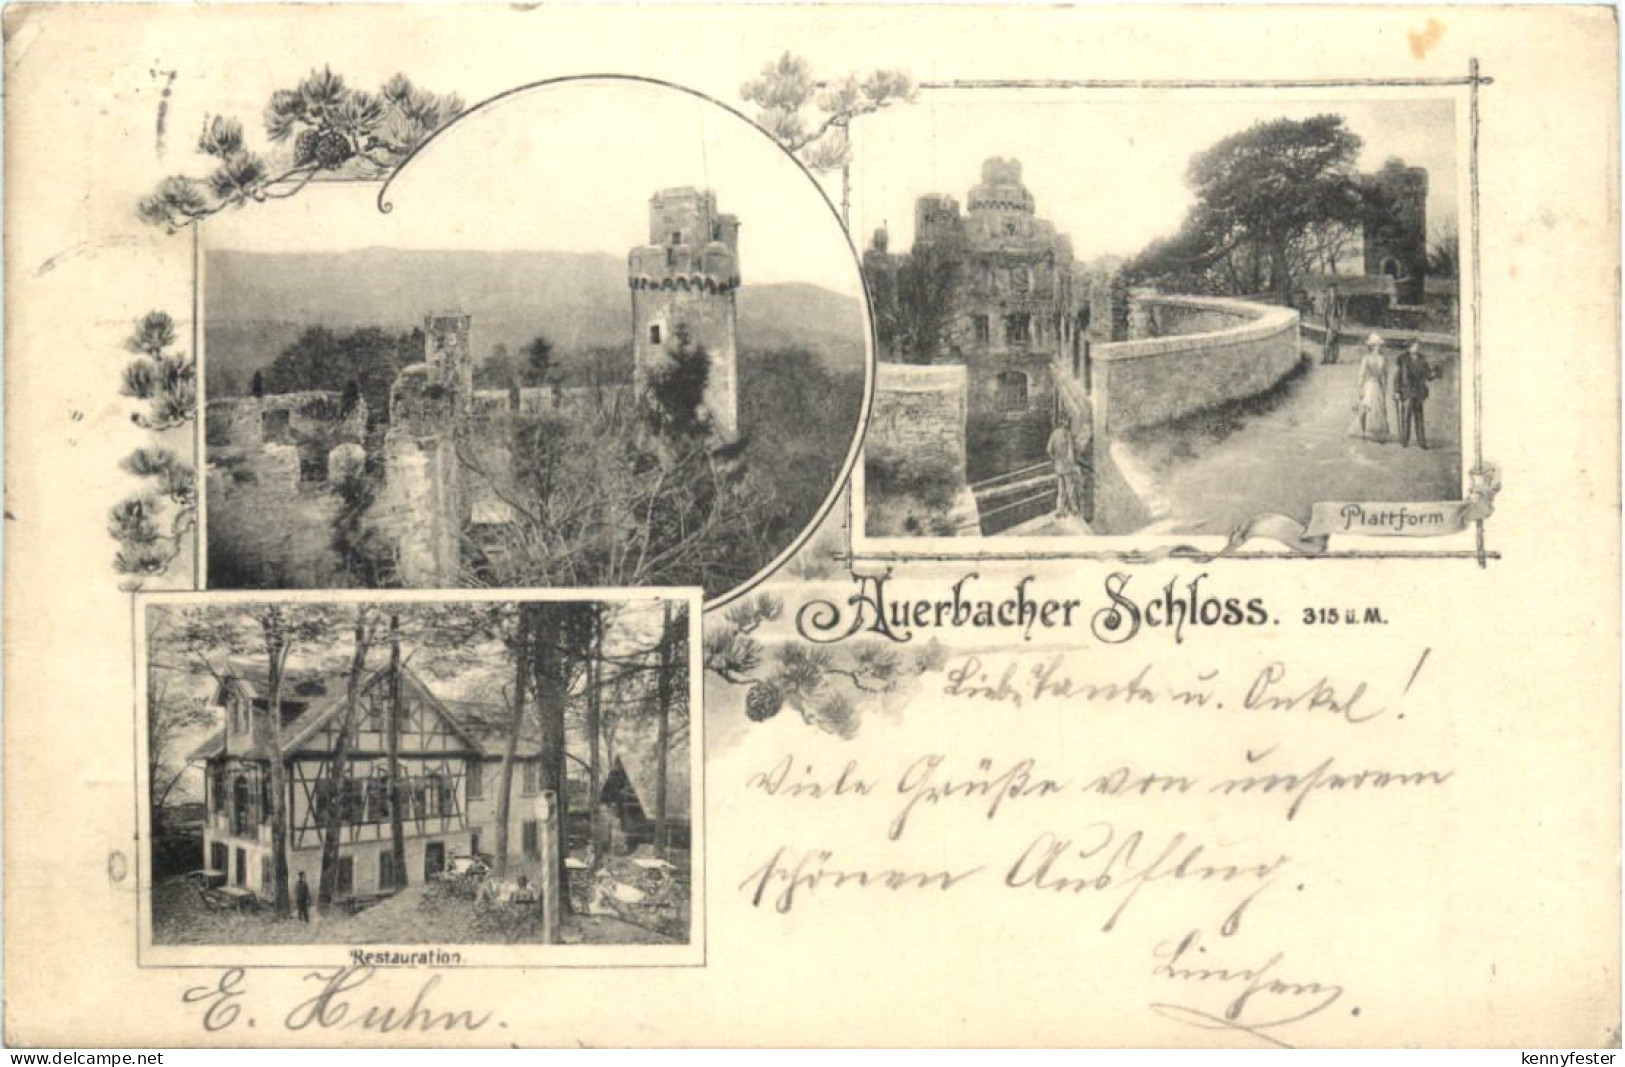 Plattform
Auerbacher Schloss. 315 ü. M.
Liebe Tante u. Onkel!
Viele Grüße von unserem
schönen Ausflug.
Linchen.
Restauration.
E. Huhn.
delcampe.net
kennyfester